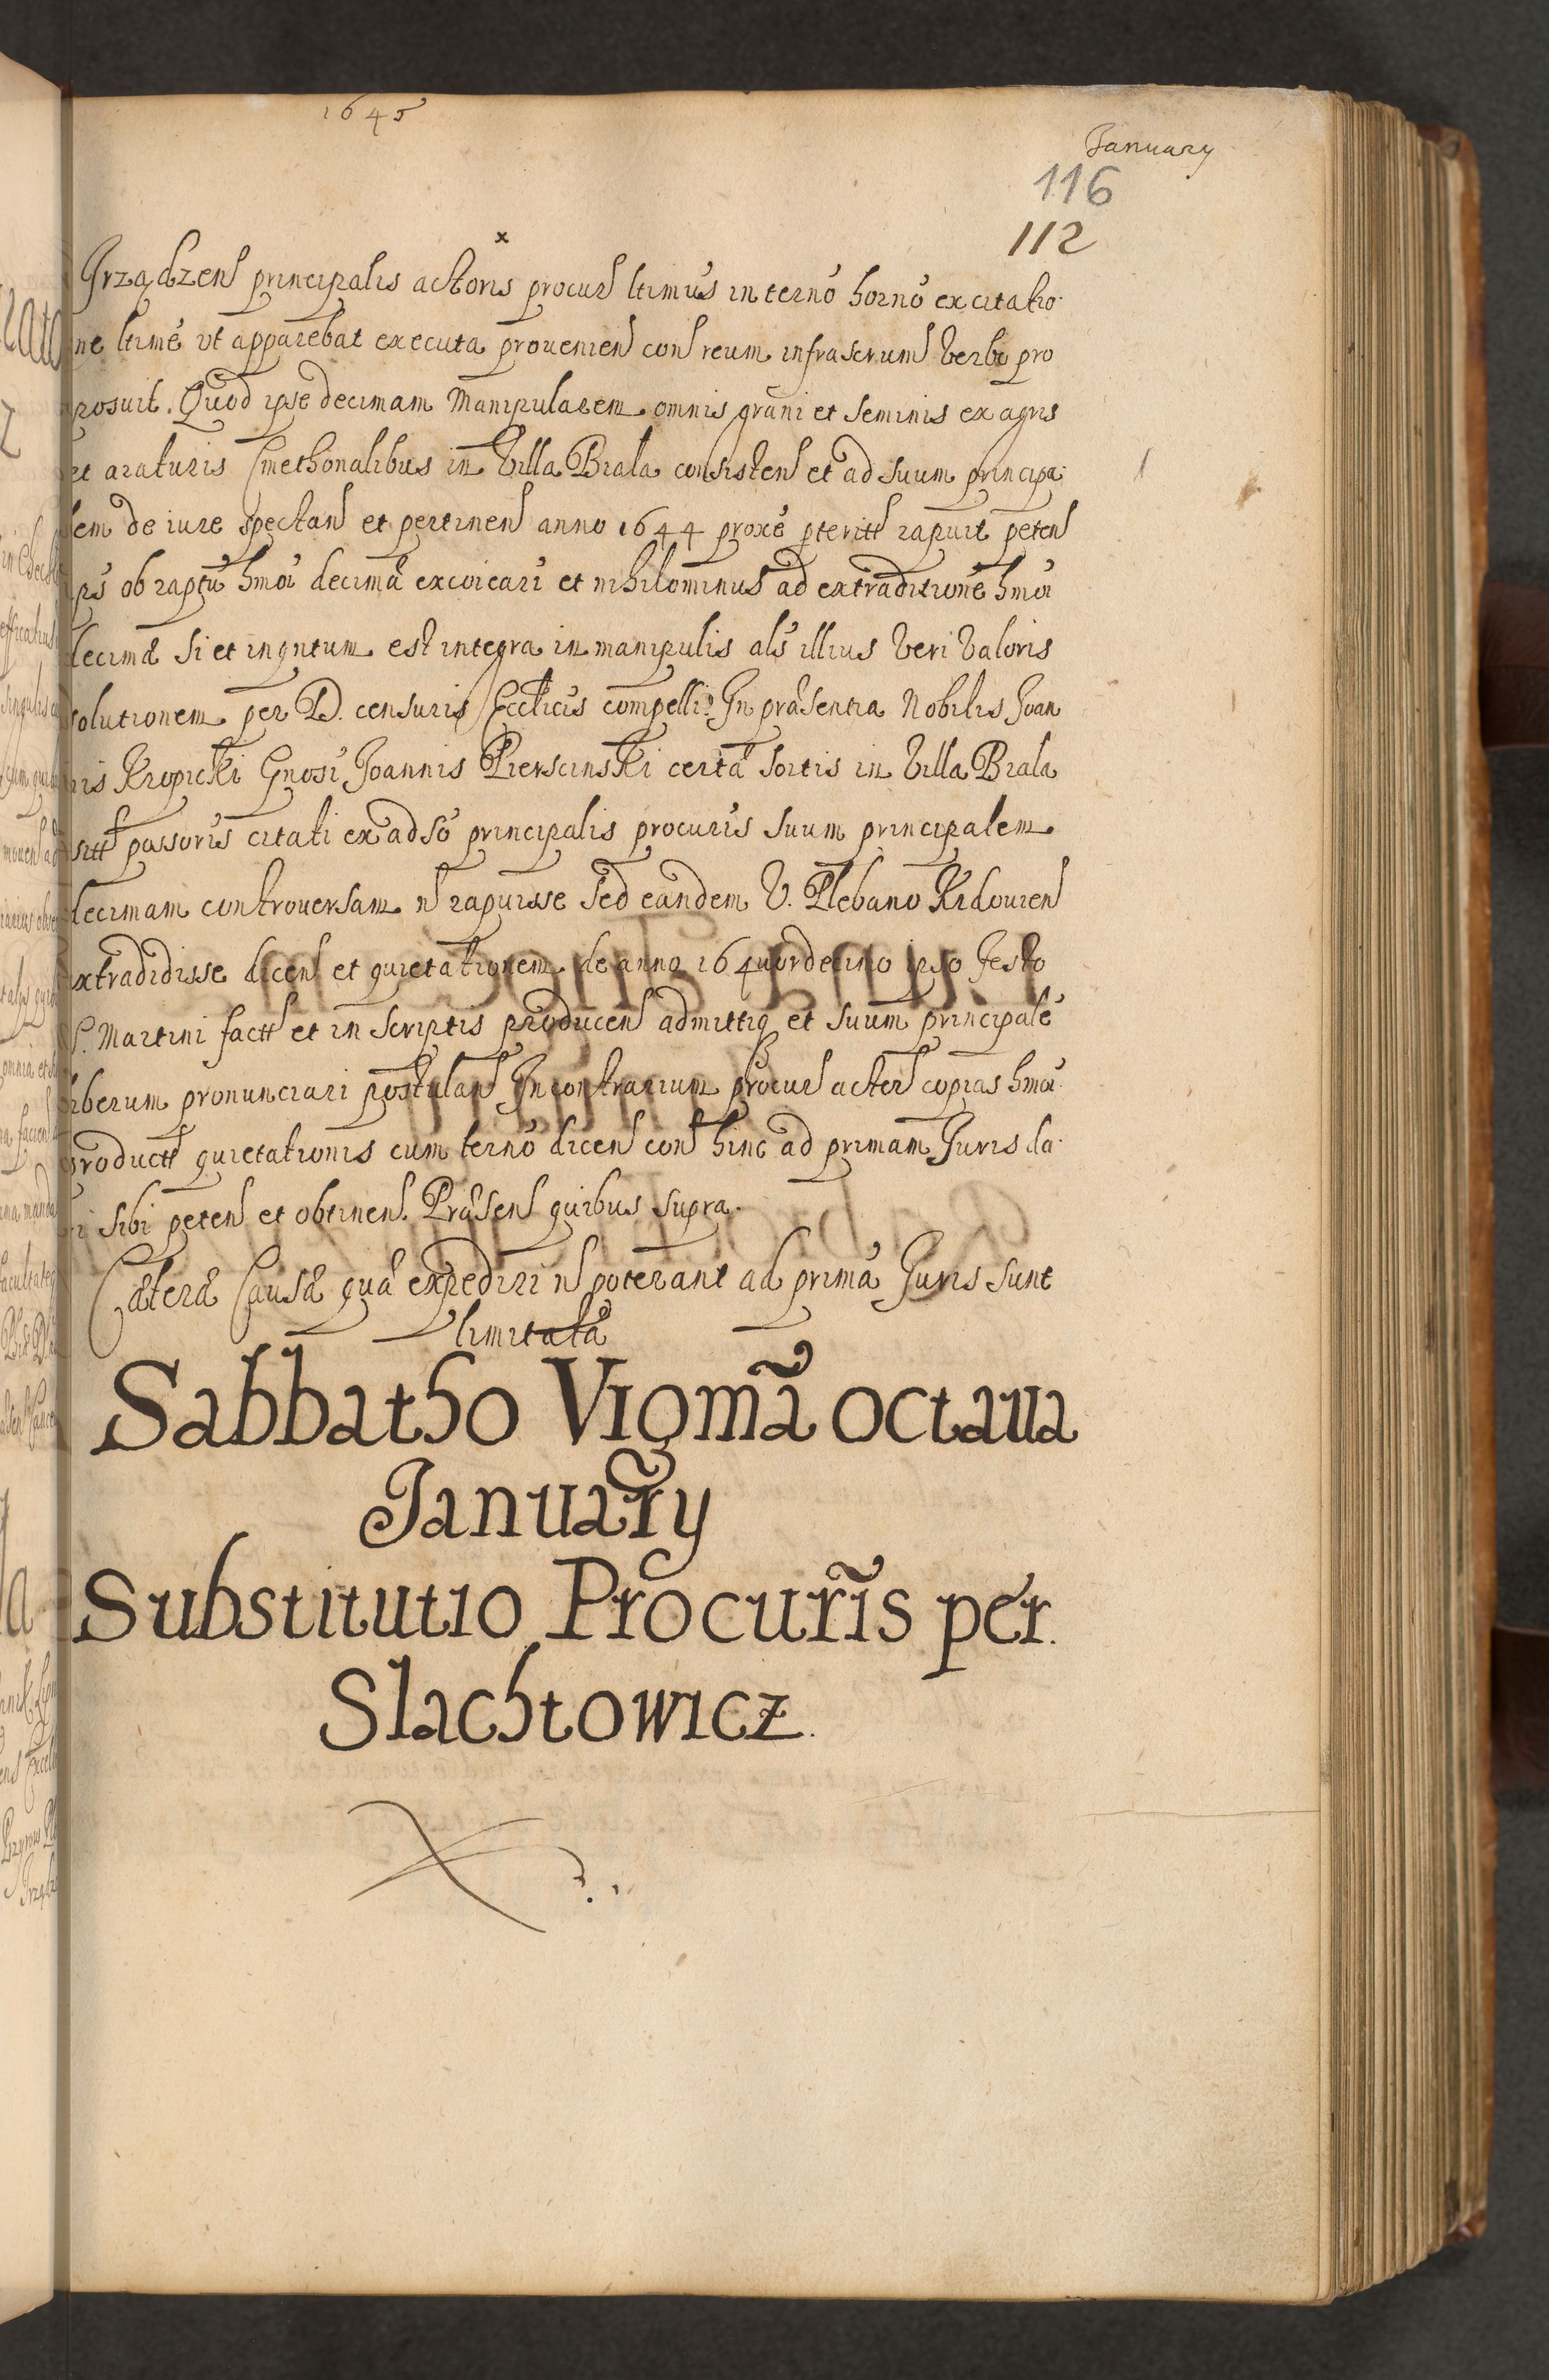 1645
January
116
112
x
Irządzen principalis actoris procur ltimus in terno horno ex citatio
ne ltime ut apparebat executa prouenien con reum infrascrum verbo pro
posuit. Quod ipse decimam Manipularem omnis grani et seminis ex agris
et araturis Cmethonalibus in Villa Biala consisten et ad suum principa
lem de iure spectan et pertinen anno 1644 proxe pterit rapuit peten
ob raptu hmoi decima excoicari et nihilominus ad extraditione hmoi
decimæ si et inqntum est integra in manipulis als illius veri valoris
solutionem per D. censuris Ecclicis compelli. In præsentia Nobilis Joan
nis Kropicki Gnosi Joannis Pierscinski certæ sortis in Villa Biala
possoris citati ex adso principalis procuris suum principalem
decimam controuersam n rapuisse sed eandem V. Plebano Kidouien
extradidisse dicen et quietationem de anno 164 ipso festo
S. Martini fact et in scriptis producen admittiq et suum principale
liberum pronunciari postulan In contrarium procur actor copias hmoi
product quietationis cum terno dicen con hinc ad primam Juris da
ri sibi peten et obtinen. Præsen quibus supra.
Cæteræ Causæ quæ expediri n poterant ad prima Juris sunt
limitatæ
Sabbatho Vigma octaua
January
Substitutio Procuris per
Slachtowicz.